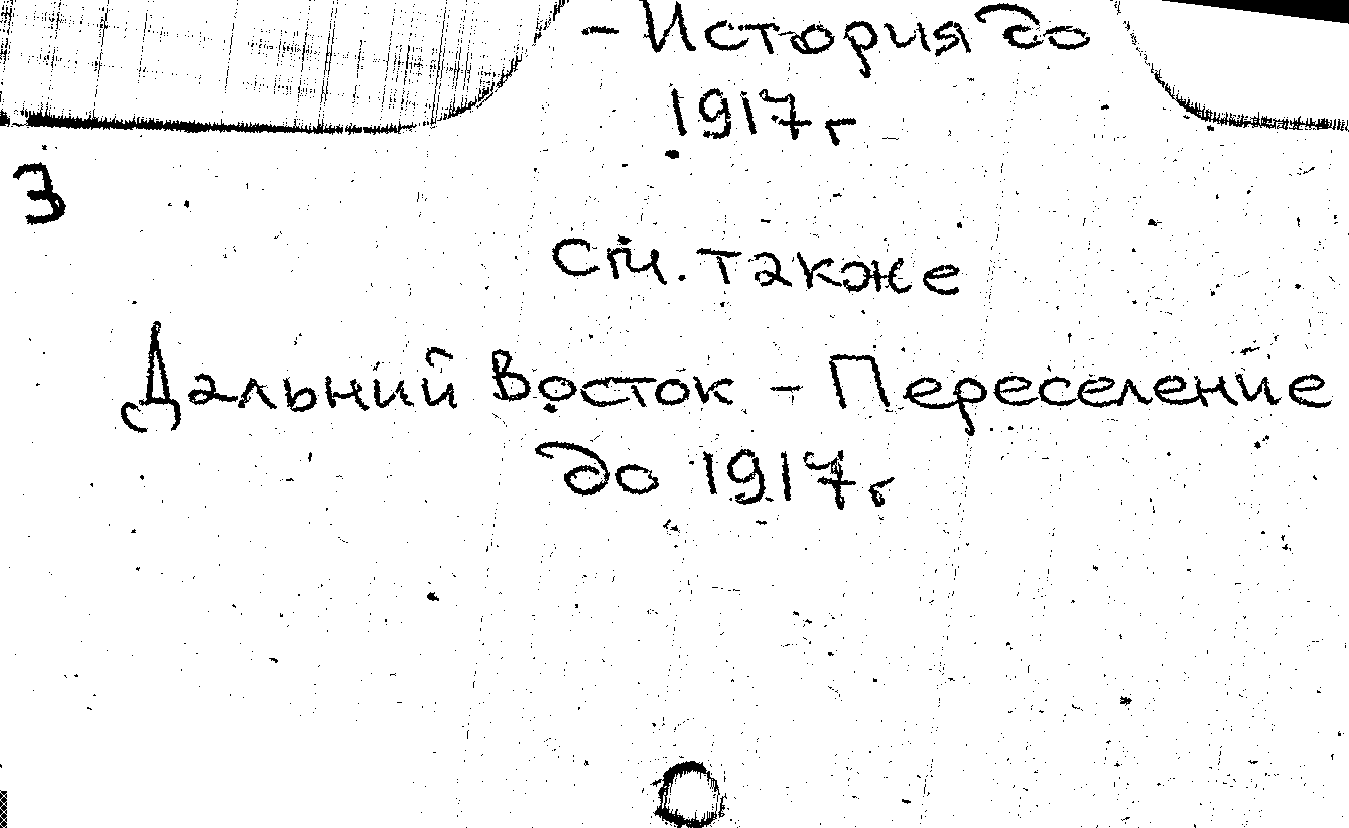 - История до
1917 г
3
см. также
Дальний Восток - Переселение
до 1917 г